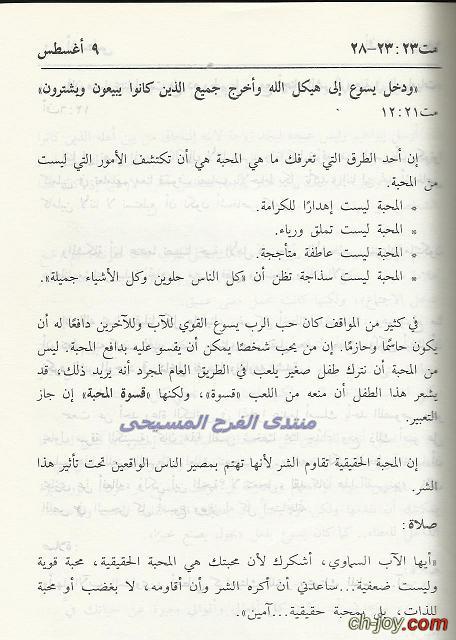 مت٢٣:٢٣-٢٨
٩ أغسطس
«ودخل يسوع إلى هيكل الله وأخرج جميع الذين كانوا يبيعون ويشترون»
مت١٢:٢١
إن أحد الطرق التي تعرفك ما هي المحبة هي أن تكتشف الأمور التي ليست
من المحبة.
* المحبة ليست إهدارًا للكرامة.
* المحبة ليست تملق ورياء.
* المحبة ليست عاطفة متأججة.
* المحبة ليست سذاجة تظن أن «كل الناس حلوين وكل الأشياء جميلة».
في كثير من المواقف كان حب الرب يسوع القوي للآب وللآخرين دافعًا له أن
يكون حاسمًا وحازمًا. إن من يحب شخصًا يمكن أن يقسو عليه بدافع المحبة. ليس
من المحبة أن نترك طفل صغير يلعب في الطريق العام لمجرد أنه يريد ذلك، قد
يشعر هذا الطفل أن منعه من اللعب «قسوة»، ولكنها «قسوة المحبة» إن جاز
التعبير.
منتدى الفرح المسيحى
إن المحبة الحقيقية تقاوم الشر لأنها تهتم بمصير الناس الواقعين تحت تأثير هذا
الشر.
صلاة:
«أيها الآب السماوي، أشكرك لأن محبتك هي المحبة الحقيقية، محبة قوية
وليست ضعفية...ساعدني أن أكره الشر وأن أقاومه، لا بغضب أو محبة
للذات، بل بمحبة حقيقية...آمين».
ch-joy.com